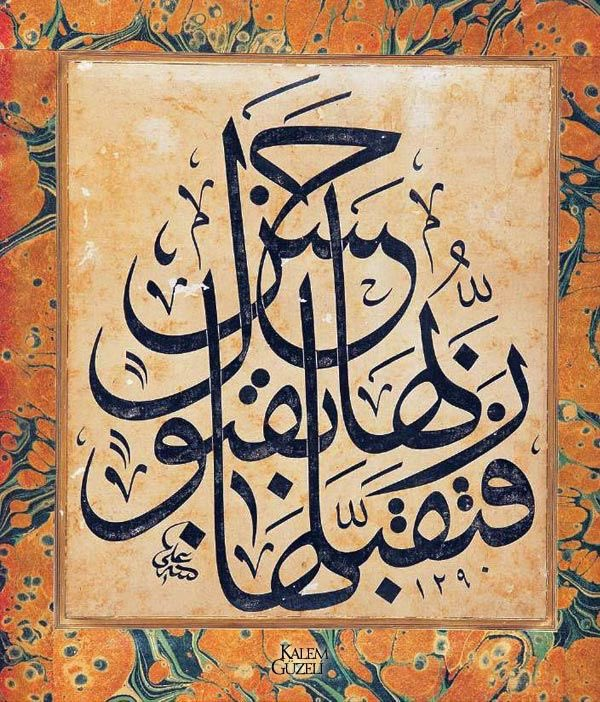 فتقبّلها
ربُّها بقبولٍ
حسنٍ
علي
١٢٩٠
KALEM
GÜZELİ